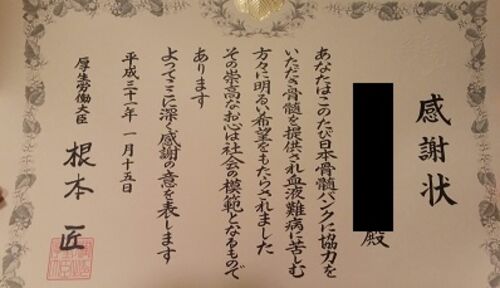 感謝状
殿
あなたはこのたび日本骨髄バンクに協力を
いただき骨髄を提供され血液難病に苦しむ
方々に明るい希望をもたらされました
その崇高なお心は社会の模範となるもので
あります
よってここに深く感謝の意を表します
平成三十一年一月十五日
厚生労働大臣 根本匠